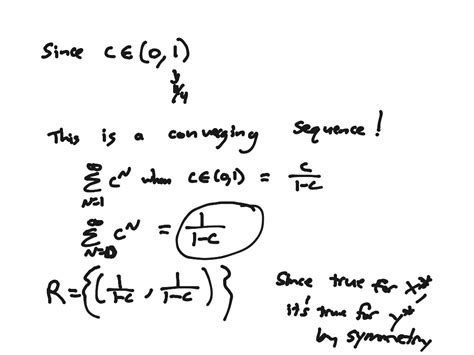 Since C∈(0,1)
This is a converging sequence!
∞ Σ N=1 C^N when C∈(0,1) = C/(1-C)
∞ Σ N=0 C^N = 1/(1-C)
R={(1/(1-C), 1/(1-C))}
Since true for X*,
it's true for Y*
by symmetry